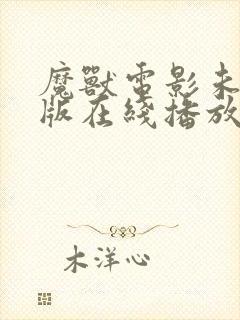 魔獸電影未
版在綫播放
木洋心